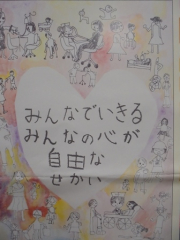 みんなでいきる
みんなの心が
自由な
せかい